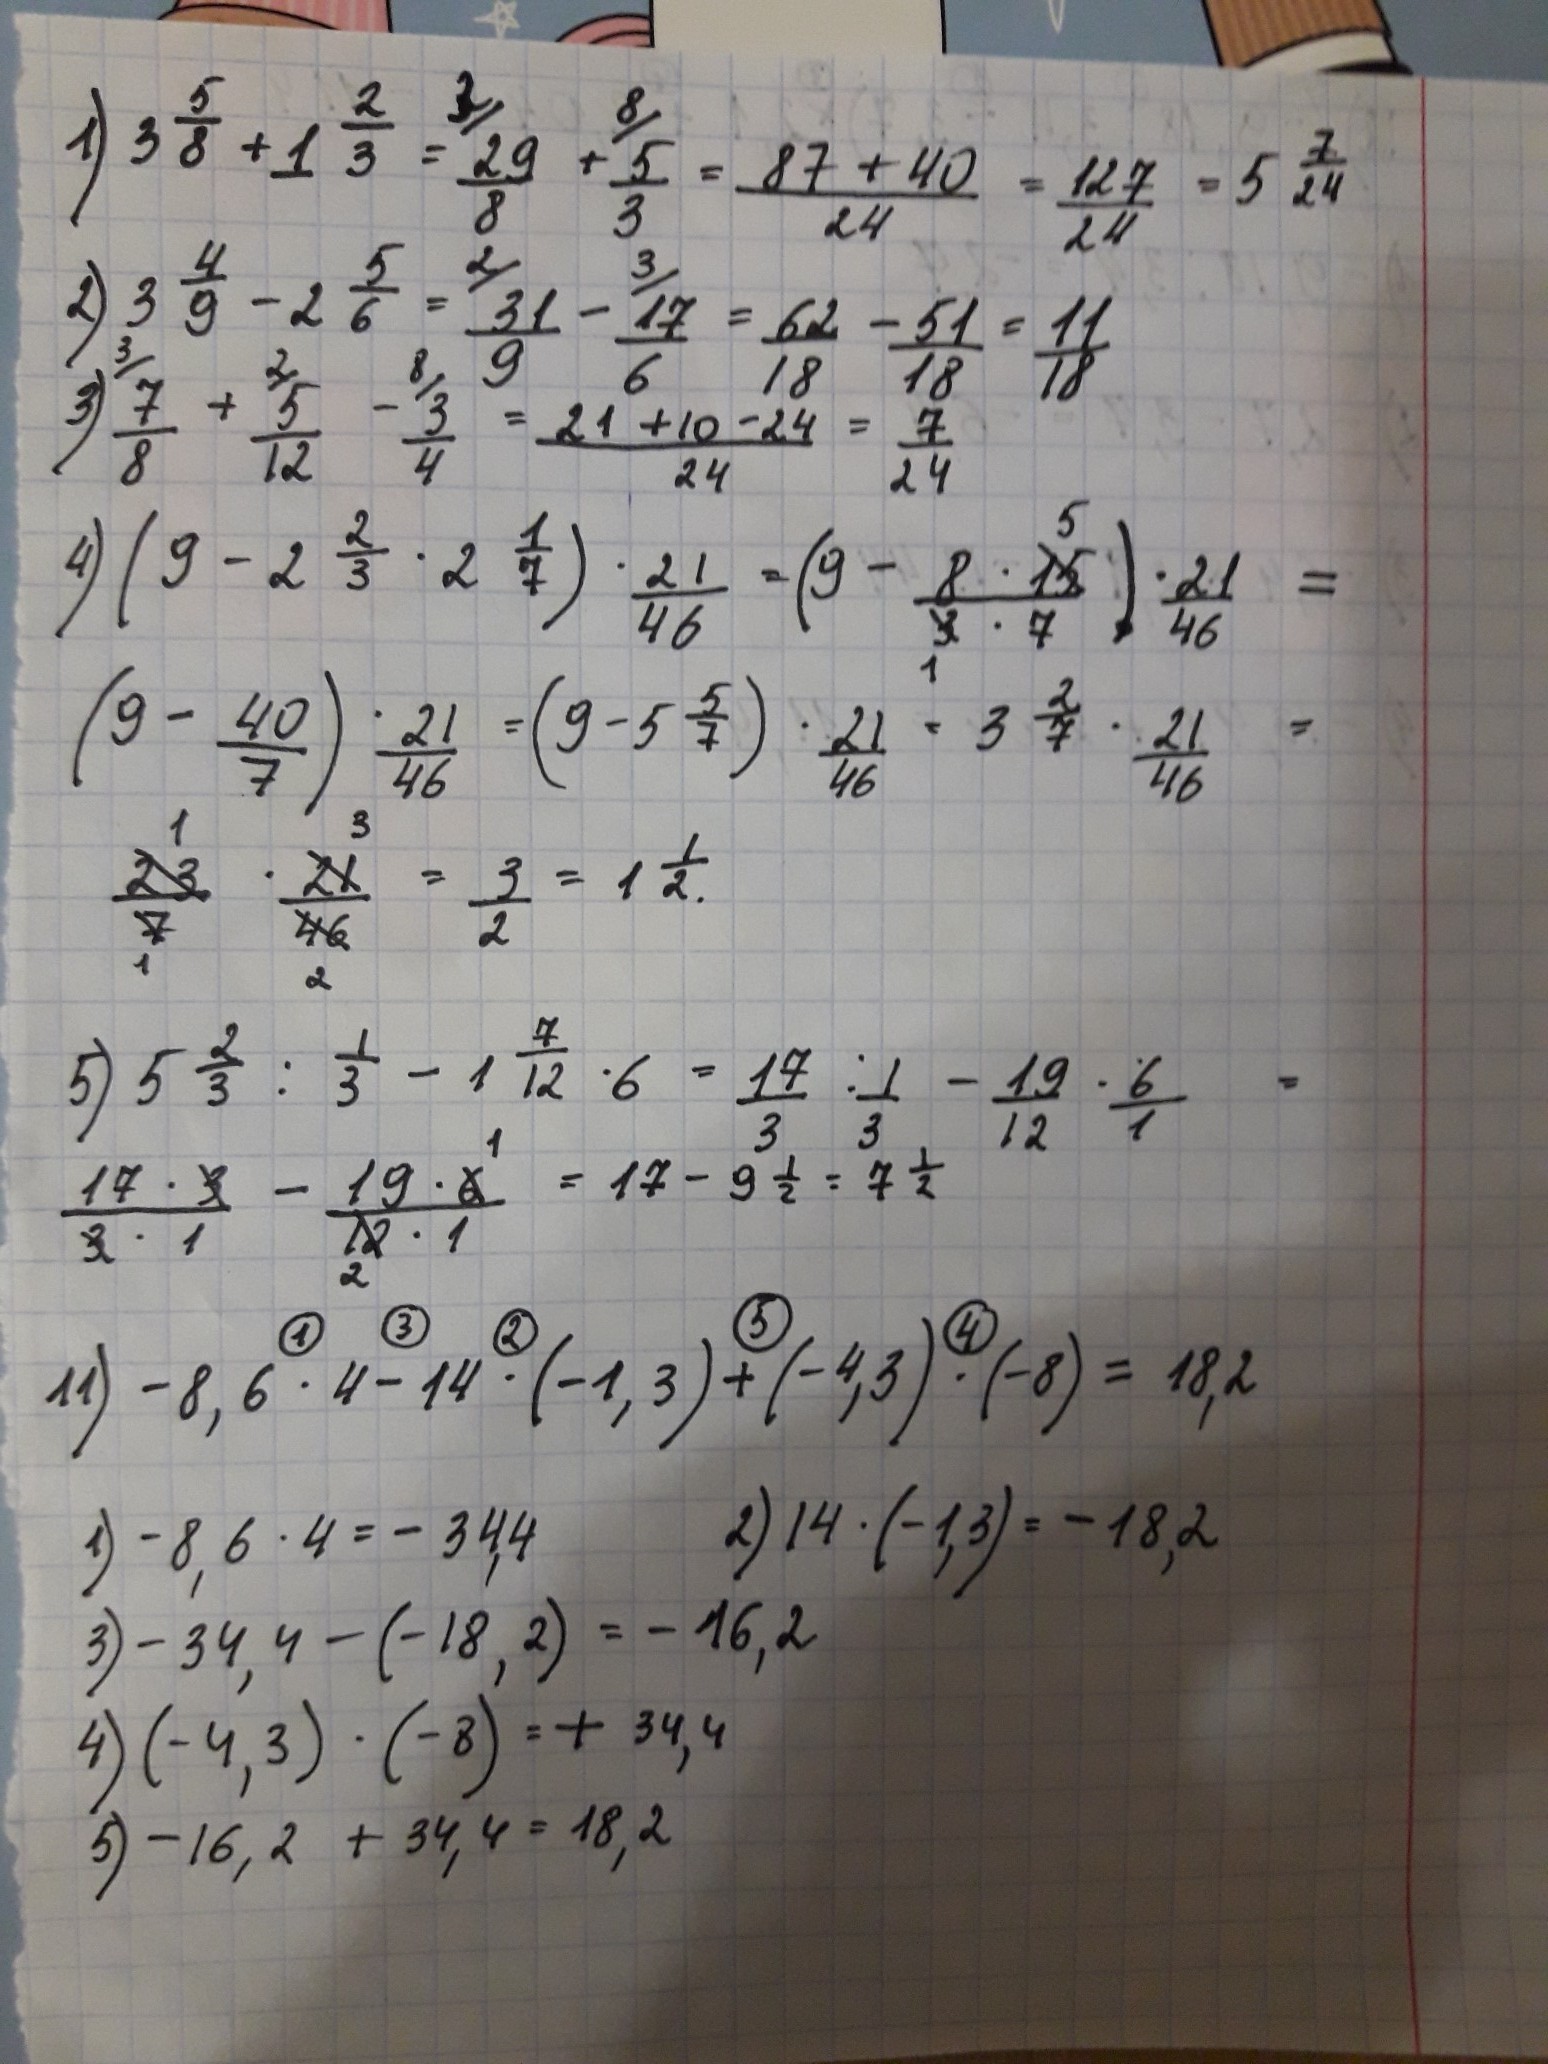 1) 3 5/8 + 1 2/3 = 3/ 29/8 + 8/ 5/3 = (87 + 40)/24 = 127/24 = 5 7/24
2) 3 4/9 - 2 5/6 = 2/ 31/9 - 3/ 17/6 = 62/18 - 51/18 = 11/18
3) 3/ 7/8 + 2/ 5/12 - 8/ 3/4 = (21 + 10 - 24)/24 = 7/24
4) (9 - 2 2/3 · 2 1/7) · 21/46 = (9 - (8 · 15 5)/(3 1 · 7)) · 21/46 =
(9 - 40/7) · 21/46 = (9 - 5 5/7) · 21/46 = 3 2/7 · 21/46 =
23 1/7 1 · 21 3/46 2 = 3/2 = 1 1/2.
5) 5 2/3 : 1/3 - 1 7/12 · 6 = 17/3 : 1/3 - 19/12 · 6/1 =
(17 · 3)/(3 · 1) - (19 · 6 1)/(12 2 · 1) = 17 - 9 1/2 = 7 1/2
① ③ ② ⑤ ④
11) -8,6 · 4 - 14 · (-1,3) + (-4,3) · (-8) = 18,2
1) -8,6 · 4 = - 34,4 2) 14 · (-1,3) = - 18,2
3) - 34,4 - (-18,2) = - 16,2
4) (-4,3) · (-8) = + 34,4
5) -16,2 + 34,4 = 18,2